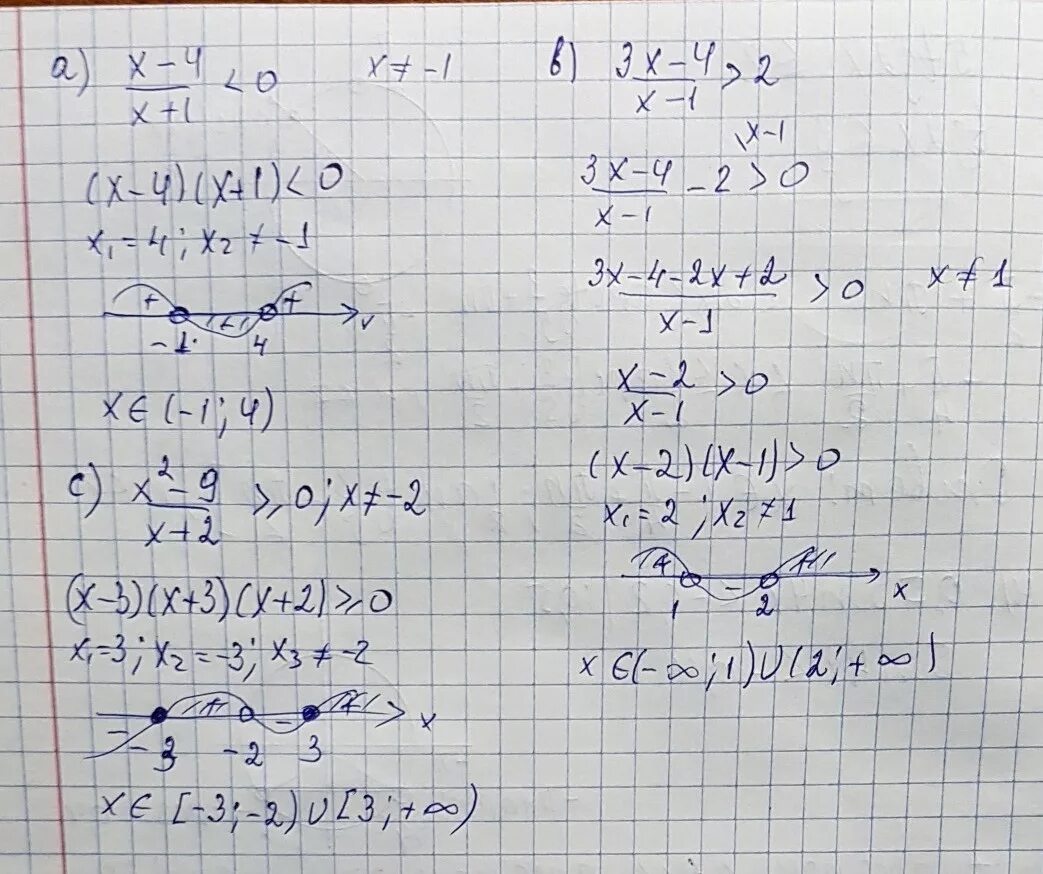 а) (x-4)/(x+1) < 0   x ≠ -1
(x-4)(x+1) < 0
x₁ = 4; x₂ ≠ -1
+ - +
-1 4 x
x ∈ (-1; 4)
c) (x²-9)/(x+2) ≥ 0; x ≠ -2
(x-3)(x+3)(x+2) ≥ 0
x₁=3; x₂ = -3; x₃ ≠ -2
- + - + x
-3 -2 3
x ∈ [-3; -2) ∪ [3; +∞)
в) (3x-4)/(x-1) > 2
\x-1
(3x-4)/(x-1) - 2 > 0
(3x-4-2x+2)/(x-1) > 0   x ≠ 1
(x-2)/(x-1) > 0
(x-2)(x-1) > 0
x₁ = 2; x₂ ≠ 1
+ - +
1 2 x
x ∈ (-∞; 1) ∪ (2; +∞)